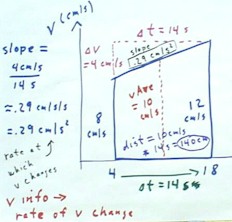 v (cm/s)
Δt = 14 s
slope =
4 cm/s
14 s
≈ .29 cm/s/s
≈ .29 cm/s²
rate at
which
v changes
Δv
= 4 cm/s
slope
.29 cm/s²
vAve
= 10
cm/s
8
cm/s
12
cm/s
dist = 10 cm/s
* 14 s = 140 cm
4
18
Δt = 14 s
v info →
rate of v change